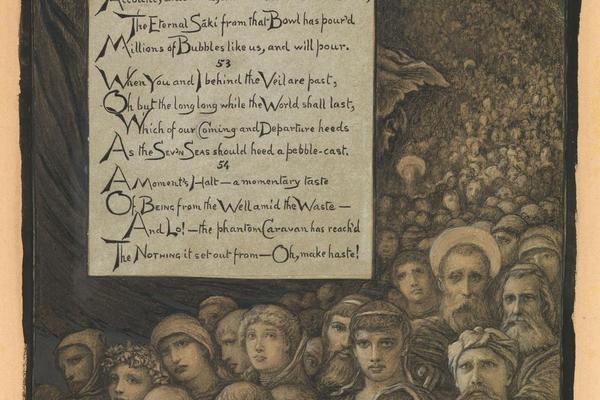 The Eternal Sákí from that Bowl has pour'd
Millions of Bubbles like us, and will pour.
53
When You and I behind the Veil are past,
Oh but the long long while the World shall last,
Which of our Coming and Departure heeds
As the SEV'N SEAS should heed a pebble-cast.
54
A Moment's Halt — a momentary taste
Of BEING from the Well amid the Waste —
And Lo! — the phantom Caravan has reach'd
The NOTHING it set out from — Oh, make haste!